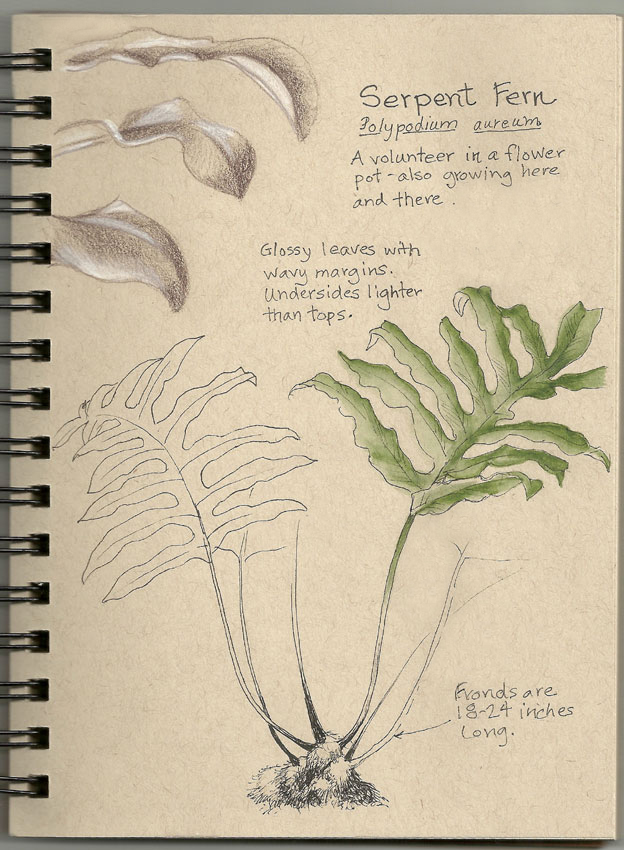 Serpent Fern
Polypodium aureum
A volunteer in a flower
pot - also growing here
and there .
Glossy leaves with
wavy margins.
Undersides lighter
than tops.
Fronds are
18-24 inches
long.